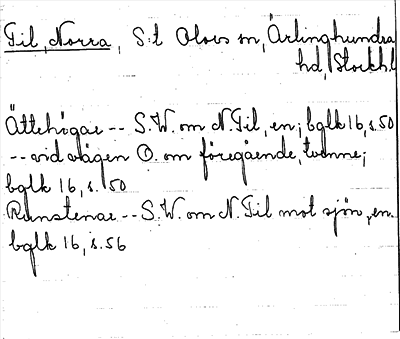 Til, Norra, S:t Olovs sn, Ärlinghundra
hd, Stockh.l
Ättehögar -- S.W. om N. Til, en; bglk 16, s. 50
-- vid vägen O. om föregående, tvenne;
bglk 16, s. 50
Runstenar -- S.W. om N. Til mot sjön, en.
bglk 16, s. 56